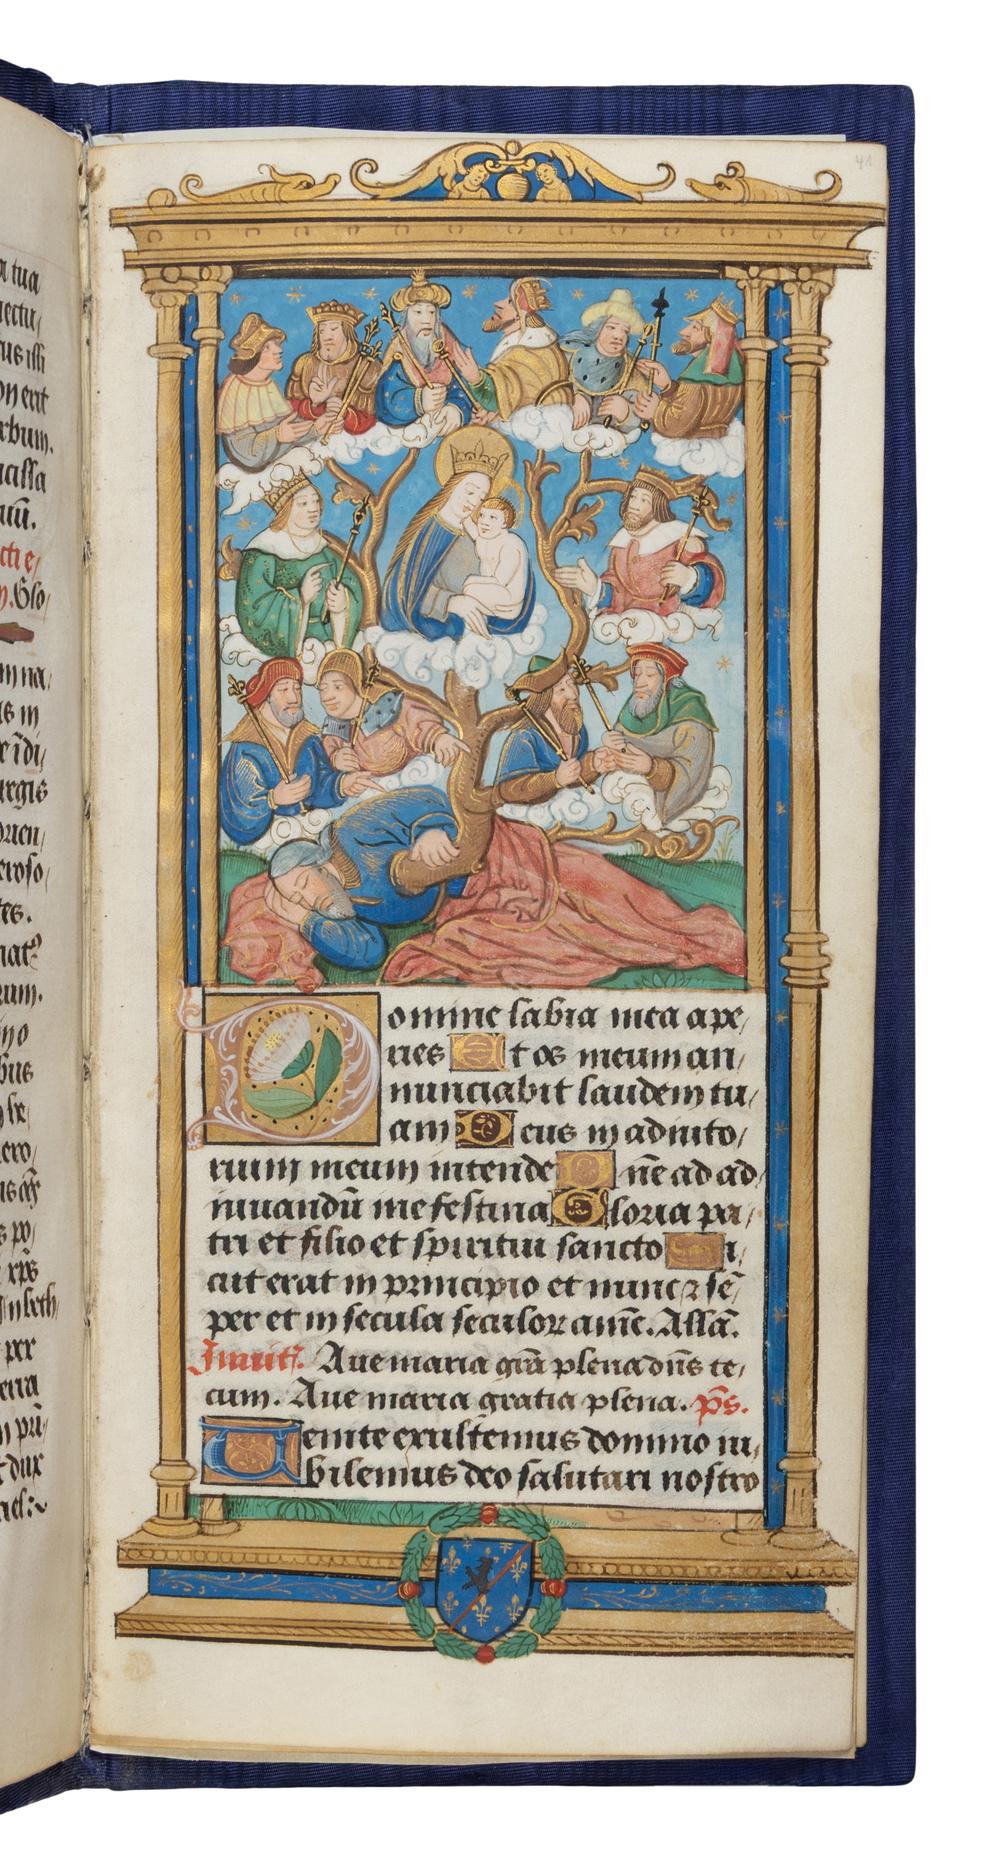 a tua
on erit
cissa
Glo
m na
us in
urgis
tes.
rum.
bus
ero
xp̄s
per
erra
dux
41
Domine labia mea ape/
ries Et os meum an/
nunciabit laudem tu/
am Deus in adiuto/
rium meum intende Dn̄e ad ad/
iuuandū me festina Gloria pa/
tri et filio et spiritui sancto Si/
cut erat in principio et nunc ⁊ sē/
per et in secula seculoꝝ amē. Allā.
Inuit̄. Aue maria grā plena dn̄s te/
cum. Aue maria gratia plena. p̄s.
Uenite exultemus domino iu/
bilemus deo salutari nostro